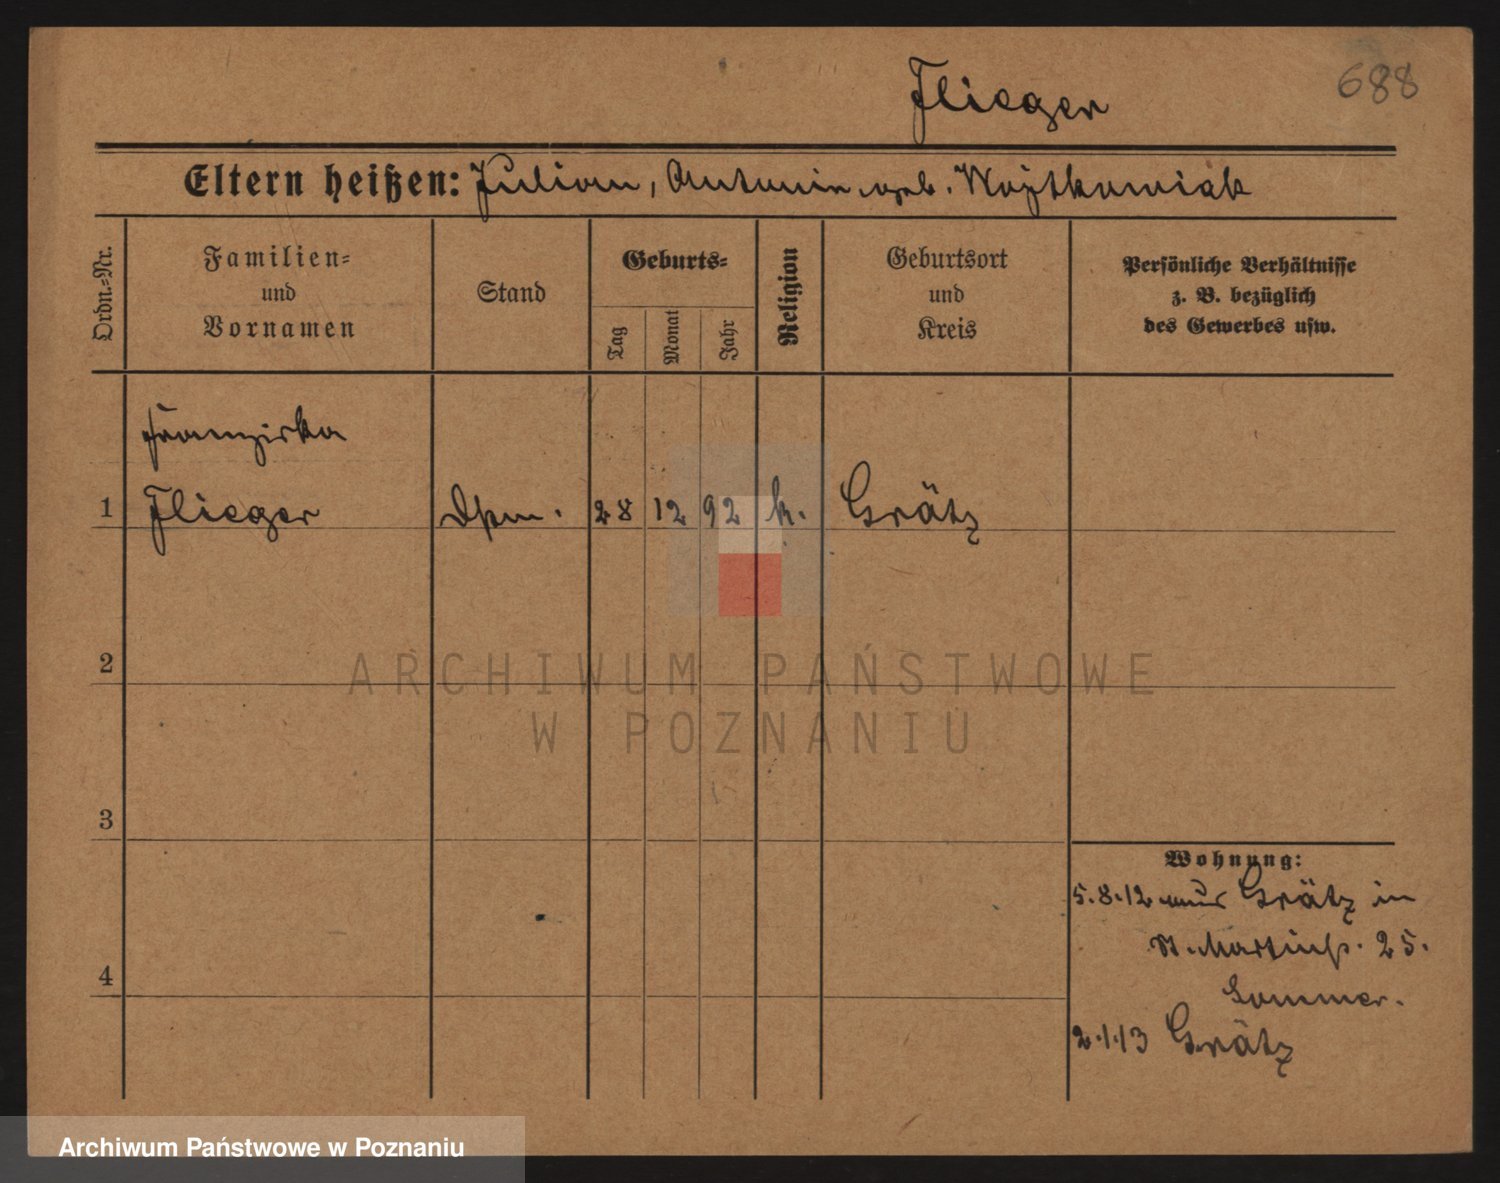 688
Flieger
Eltern heißen: Julian, Antonie geb. Wojtkowiak
Ordn.-Nr.
Familien-
und
Vornamen
Stand
Geburts-
Tag
Monat
Jahr
Religion
Geburtsort
und
Kreis
Persönliche Verhältnisse
z. B. bezüglich
des Gewerbes usw.
Franziska
1 Flieger 28 12 92 k. Grätz
2
ARCHIWUM PAŃSTWOWE
W POZNANIU
3
Wohnung:
5.8.12 aus Grätz in
St. Martinst. 25.
4
Sommer.
2.1.13 Grätz
Archiwum Państwowe w Poznaniu